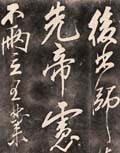 後出師
先帝慮
不兩立王業